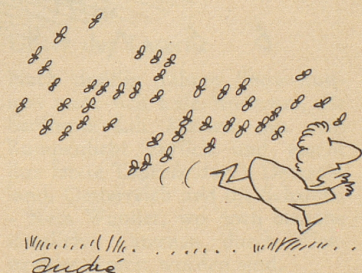 andré